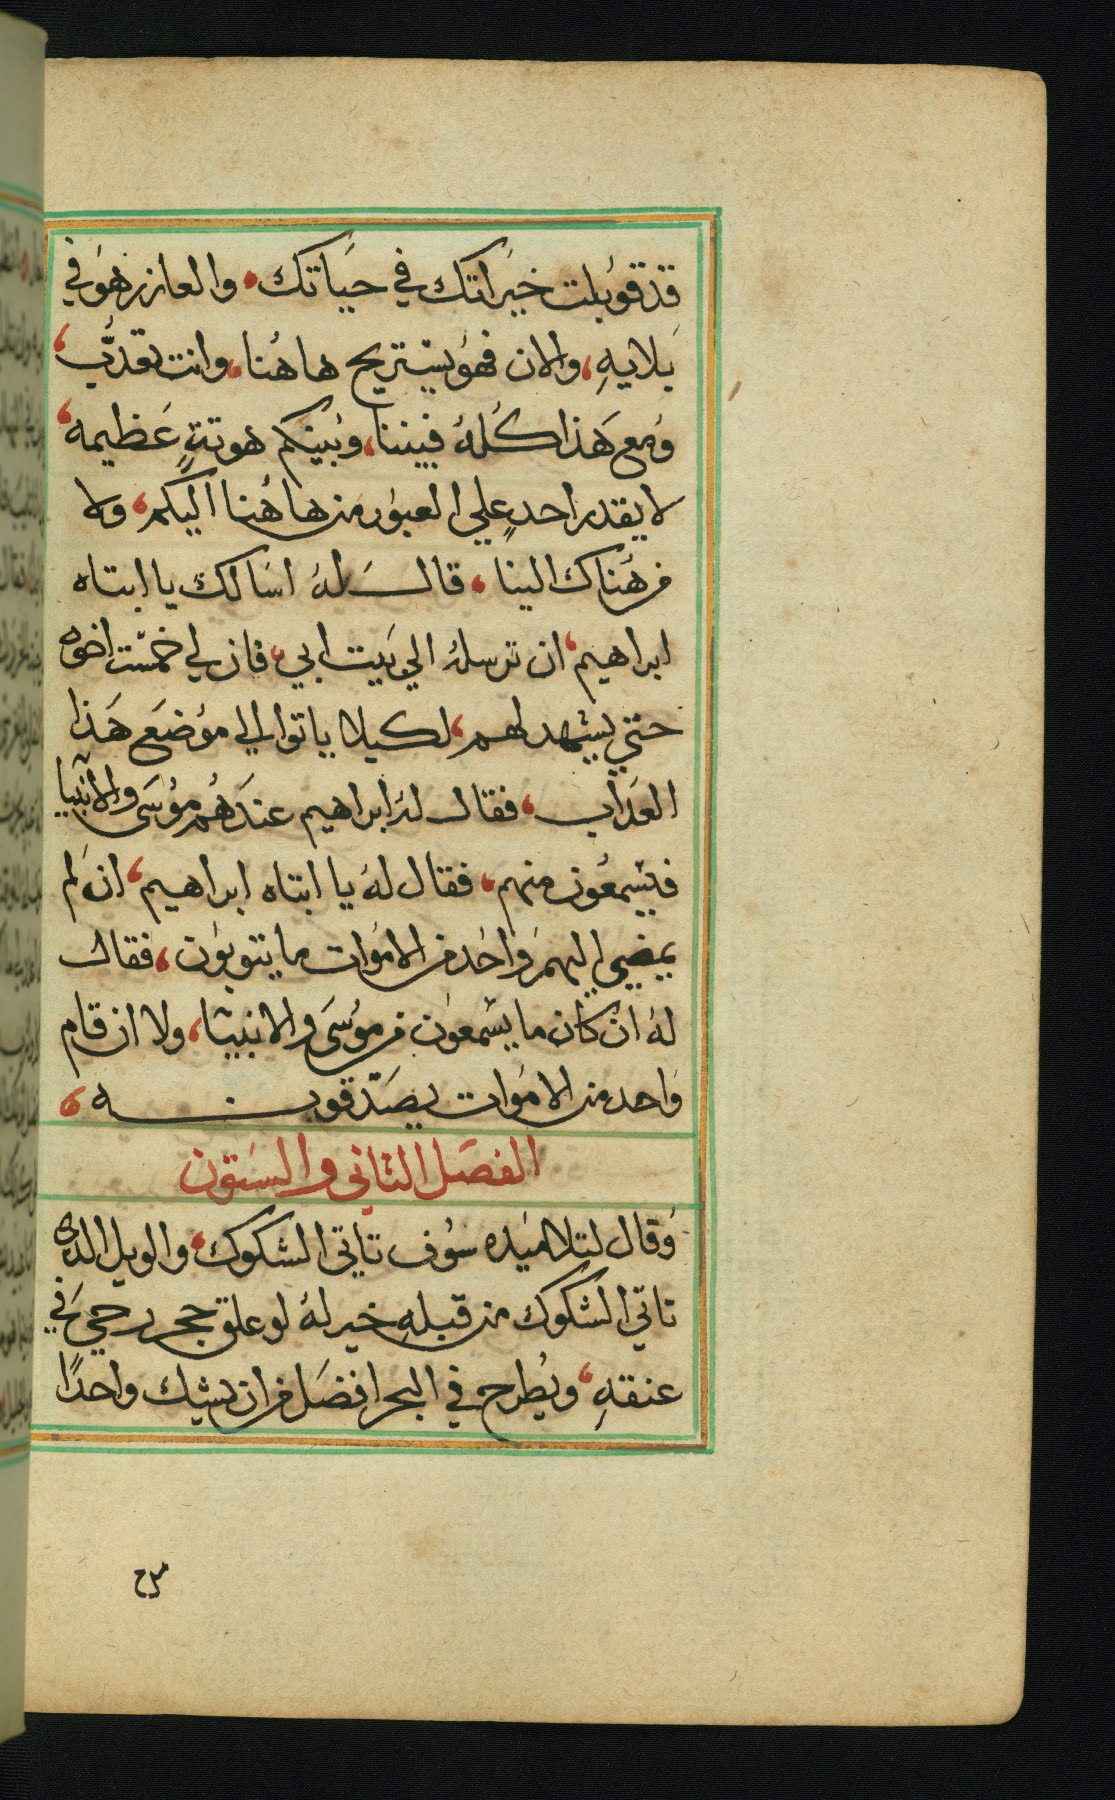 قد قوبلت خيراتك في حياتك، والعازر هو في
بلايه، والان فهو يستريح هاهنا، وانت تعذب،
ومع هذا كله فبيننا، وبينكم هوته عظيمه،
لا يقدر احد علي العبور من هاهنا اليكم، ولا
من هناك الينا، قال له اسالك يا ابتاه
ابراهيم، ان ترسله الي بيت ابي، فان لي خمست اخوه
حتي يشهد لهم، لكيلا ياتوا الي موضع هذا
العذاب، فقال له ابراهيم عندهم موسى والانبيا
فيسمعون منهم، فقال له يا ابتاه ابراهيم، ان لم
يمضي اليهم واحد من الاموات ما يتوبون، فقال
له ان كان ما يسمعون من موسى والانبيا، ولا ان قام
واحد من الاموات يصدقونه،
الفصل الثاني والستون
وقال لتلاميذه سوف تاتي الشكوك، والويل الذي
تاتي الشكوك من قبله خير له لو علق حجر رحي في
عنقه، ويطرح في البحر افضل من ان يشك واحدًا